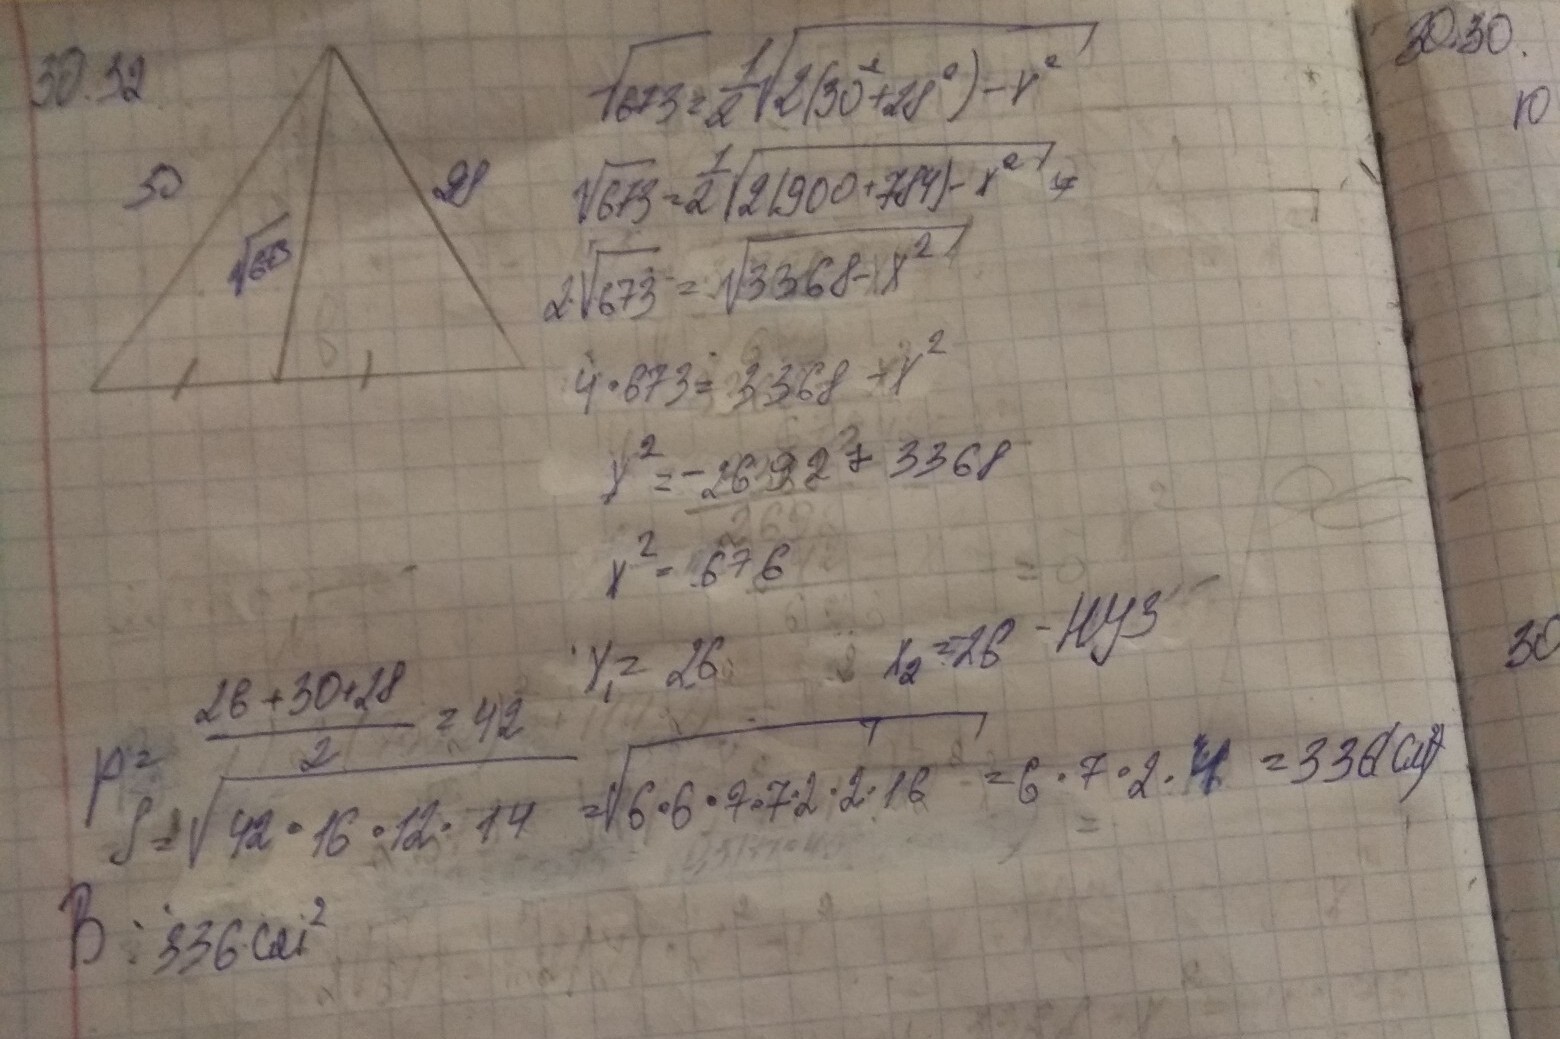 30.32
30
28
√673
√673 = 1/2 √2(30²+28²)-x²
√673 = 1/2 √2(900+784)-x²
2·√673 = √3368-x²
4·673 = 3368-x²
x² = -2692+3368
x² = 676
x₁ = 26 x₂ = -26 - НУЗ
p = 26+30+28/2 = 42
S = √42·16·12·14 = √6·6·7·7·2·2·16 = 6·7·2·4 = 336(см²)
В: 336 см²
30.30.
10
30